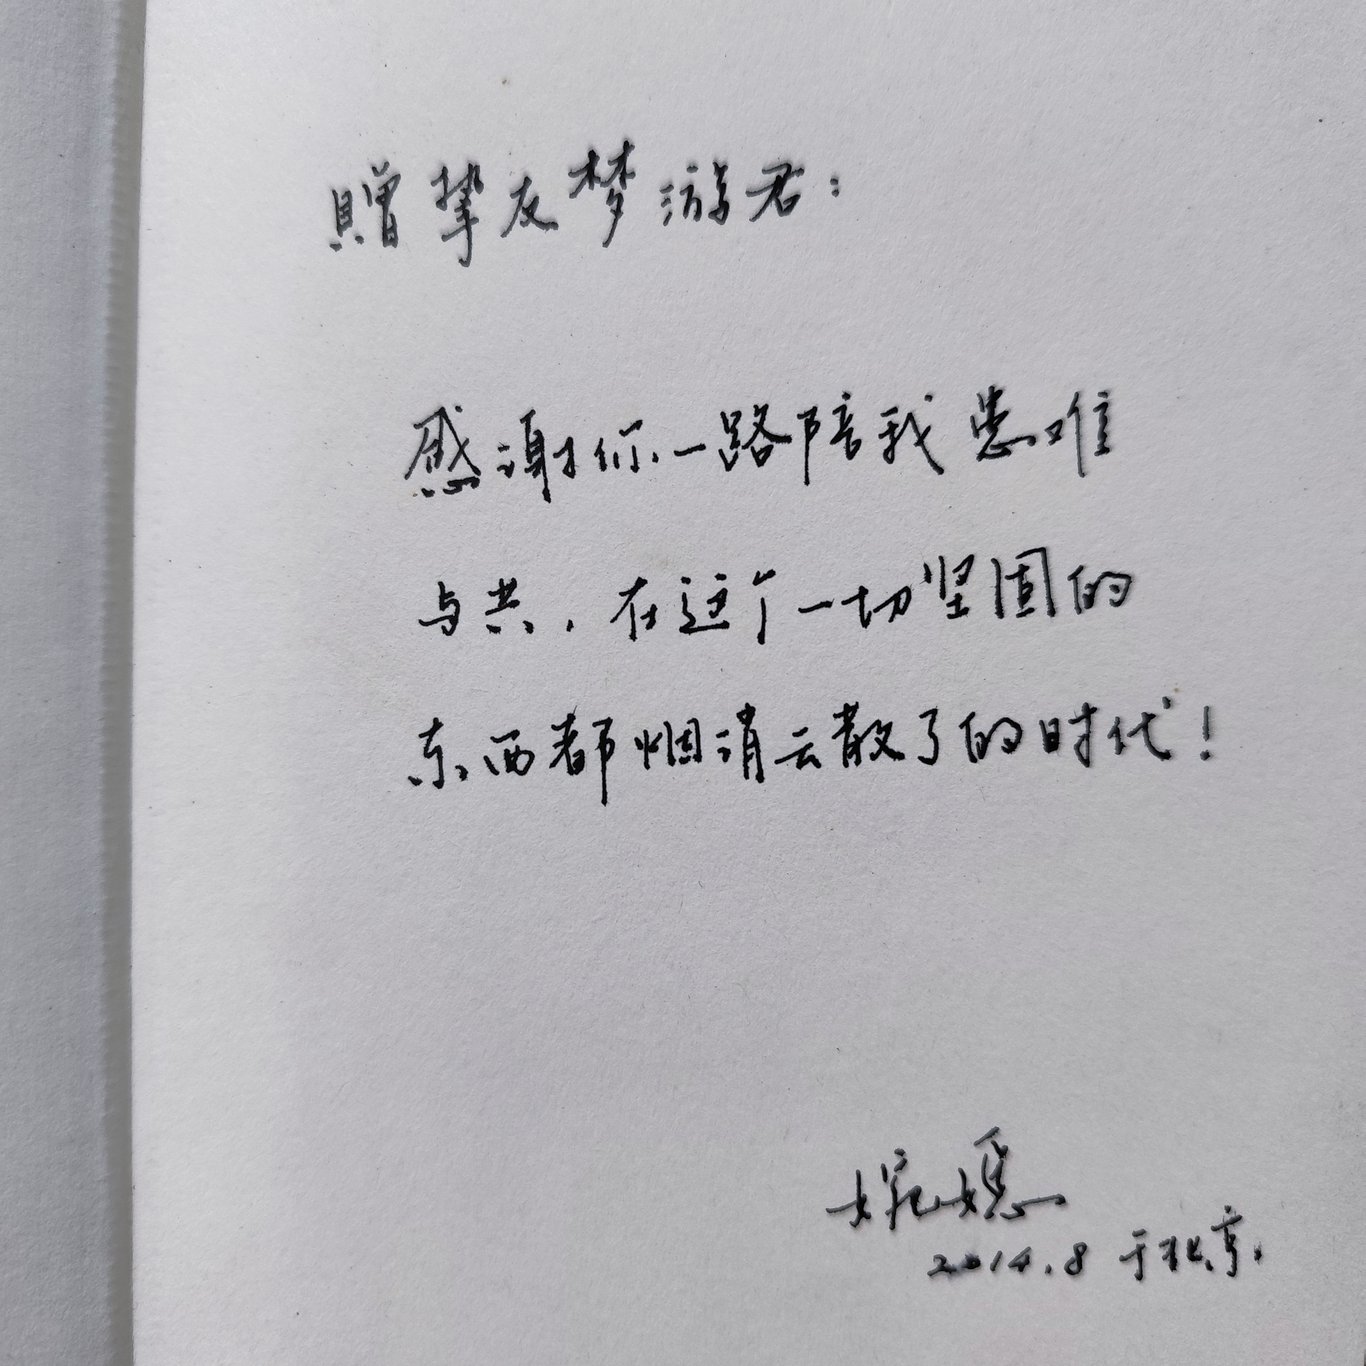 贈挚友梦游君:
感谢你一路陪我患难
与共,在这个一切坚固的
东西都烟消云散了的时代!
2014.8 于北京.